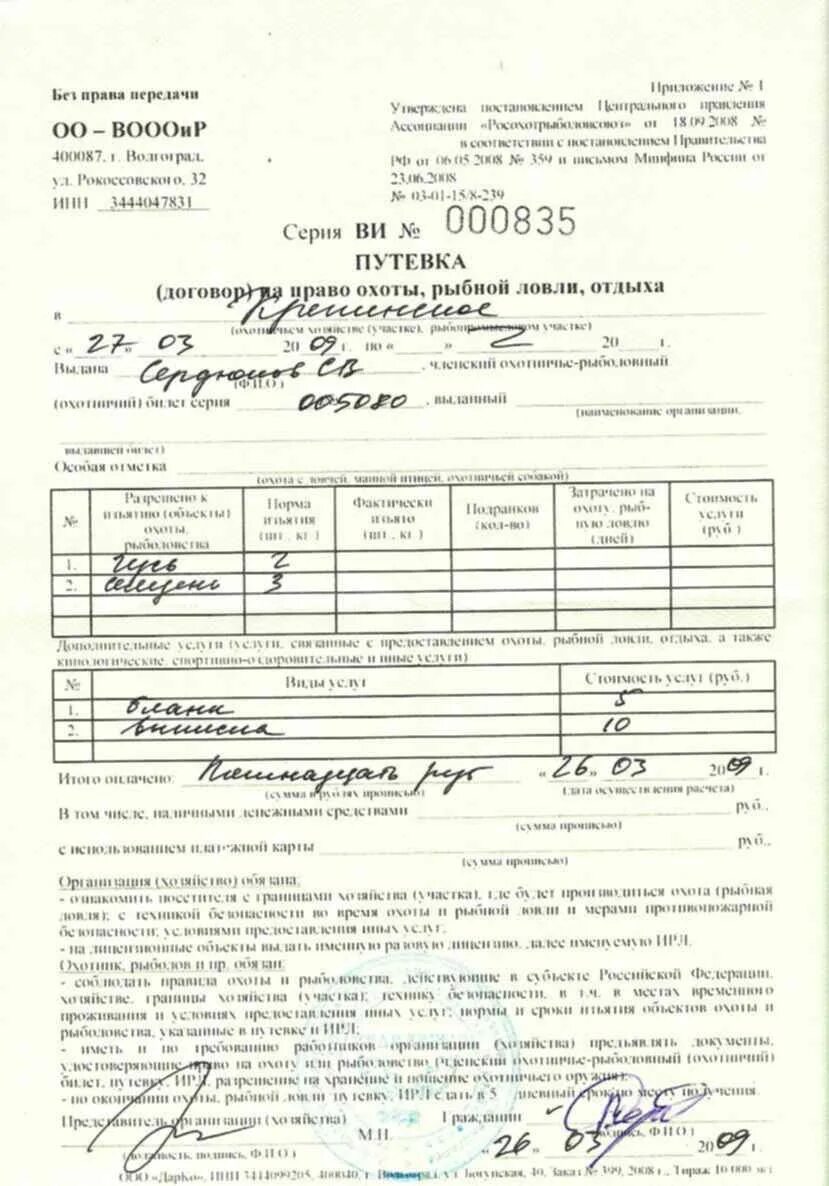 Без права передачи
ОО – ВОООиР
400087, г. Волгоград,
ул. Рокоссовского, 32
ИНН 3444047831
Приложение № 1
Утверждена постановлением Центрального правления
Ассоциации «Росохотрыболовсоюз» от 18.09.2008 №
в соответствии с постановлением Правительства
РФ от 06.05.2008 № 359 и письмом Минфина России от
23.06.2008
№ 03-01-15/8-239
Серия ВИ № 000835
ПУТЕВКА
(договор) на право охоты, рыбной ловли, отдыха
в
(охотничьем хозяйстве (участке), рыбопромысловом участке)
с « 27» 03 2009 г. по « » 20 г.
Выдана Сердюков СВ , членский охотничье-рыболовный
(Ф.И.О.)
(охотничий) билет серия 005080 , выданный
(наименование организации,
выдавшей билет)
Особая отметка
(охота с ловчей, манной птицей, охотничьей собакой)
№ Разрешено к изъятию (объекты) охоты, рыболовства Норма изъятия (шт., кг.) Фактически изъято (шт., кг.) Подранков (кол-во) Затрачено на охоту, рыбную ловлю (дней) Стоимость услуги (руб.)
1. Гусь 2
2. Селезень 3
Дополнительные услуги (услуги, связанные с предоставлением охоты, рыбной ловли, отдыха, а также
кинологические, спортивно-оздоровительные и иные услуги)
№ Виды услуг Стоимость услуг (руб.)
1. бланк 5
2. выписка 10
Итого оплачено: Пятнадцать руб «26» 03 2009 г.
(сумма в рублях прописью) (дата осуществления расчета)
В том числе, наличными денежными средствами руб.,
(сумма прописью)
с использованием платежной карты руб.,
(сумма прописью)
Организация (хозяйство) обязана:
- ознакомить посетителя с границами хозяйства (участка), где будет производиться охота (рыбная
ловля); с техникой безопасности во время охоты и рыбной ловли и мерами противопожарной
безопасности; условиями предоставления иных услуг;
- на лицензионные объекты выдать именную разовую лицензию, далее именуемую ИРЛ.
Охотник, рыболов и пр. обязан:
- соблюдать правила охоты и рыболовства, действующие в субъекте Российской Федерации,
хозяйстве, границы хозяйства (участка); технику безопасности, в т.ч. в местах временного
проживания и условиях предоставления иных услуг; нормы и сроки изъятия объектов охоты и
рыболовства, указанные в путевке и ИРЛ;
- иметь и по требованию работников организации (хозяйства) предъявлять документы,
удостоверяющие право на охоту или рыболовство (членский охотничье-рыболовный (охотничий)
билет, путевку, ИРЛ, разрешение на хранение и ношение охотничьего оружия);
- по окончании охоты, рыбной ловли путевку, ИРЛ сдать в 5 дневный срок по месту получения.
Представитель организации (хозяйства) Гражданин
М.П. (подпись, Ф.И.О.)
(должность, подпись, Ф.И.О.) «26» 03 2009 г.
ООО «ДарКо», ИНН 3444099205, 400040, г. Волгоград, ул. Богунская, 40, Заказ № 399, 2008 г., Тираж 10 000 экз.